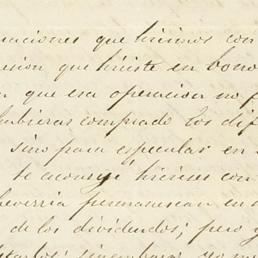 naciones que hicimos con
esion que hiciste en bono
que esa operacion no f
hubieras comprado los dif
sino para especular en
te aconsejé hicieses con
cheverria permanescan en
de los dividendos; pero y